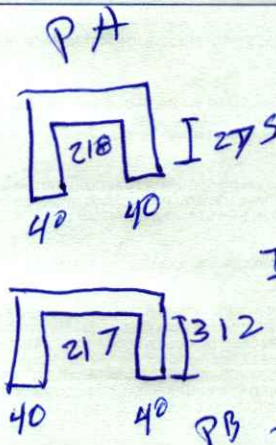 PA
218
I 275
40 40
217
312
40 40
PB